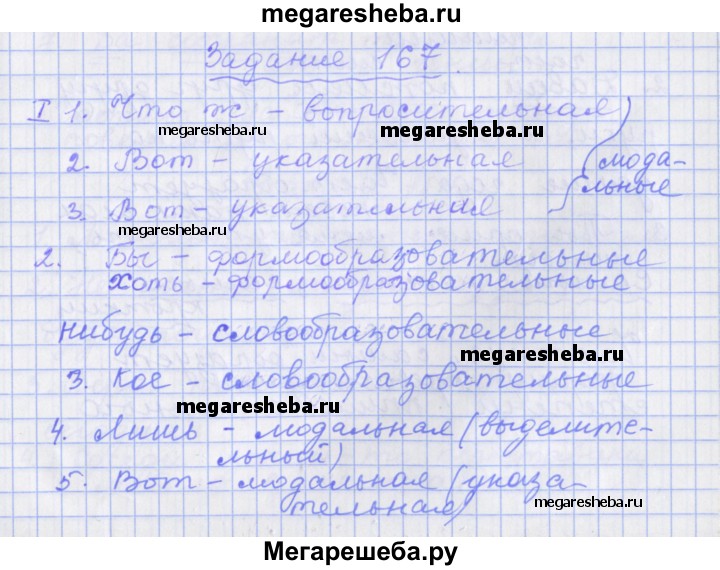 megaresheba.ru
Задание 167.
I 1. Что ж - вопросительная
megaresheba.ru
megaresheba.ru
2. Вот - указательная
мода-
льные
3. Вот - указательная
megaresheba.ru
2. Бы - формообразовательные
хоть - формообразовательные
нибудь - словообразовательные
megaresheba.ru
3. Кое - словообразовательные
megaresheba.ru
4. Лишь - модальная (выделите-
льный)
5. Вот - модальная (указа-
тельная)
megaresheba.ru
Мегарешеба.ру